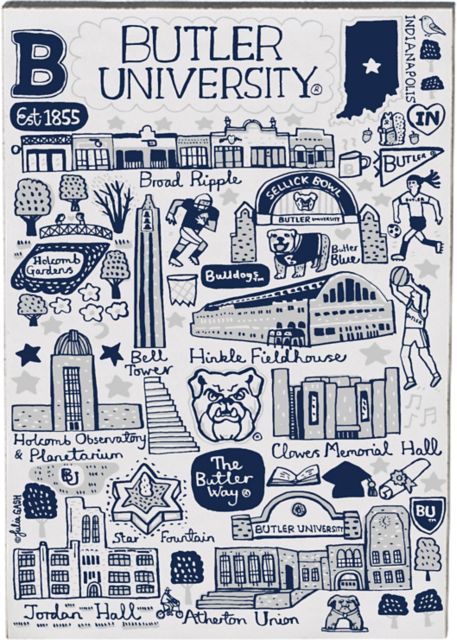 B
BUTLER
UNIVERSITY®
INDIANAPOLIS
Est. 1855
IN
BUTLER
Broad Ripple
SELLICK BOWL
BUTLER UNIVERSITY
BUTLER
Holcomb
Gardens
Butler
Blue
Bulldogs™
Bell
Tower
Hinkle Fieldhouse
Holcomb Observatory
& Planetarium
Clowes Memorial Hall
BU
The
Butler
Way®
Star Fountain
BUTLER UNIVERSITY
BU
©Julia GASH
Jordan Hall
Atherton Union